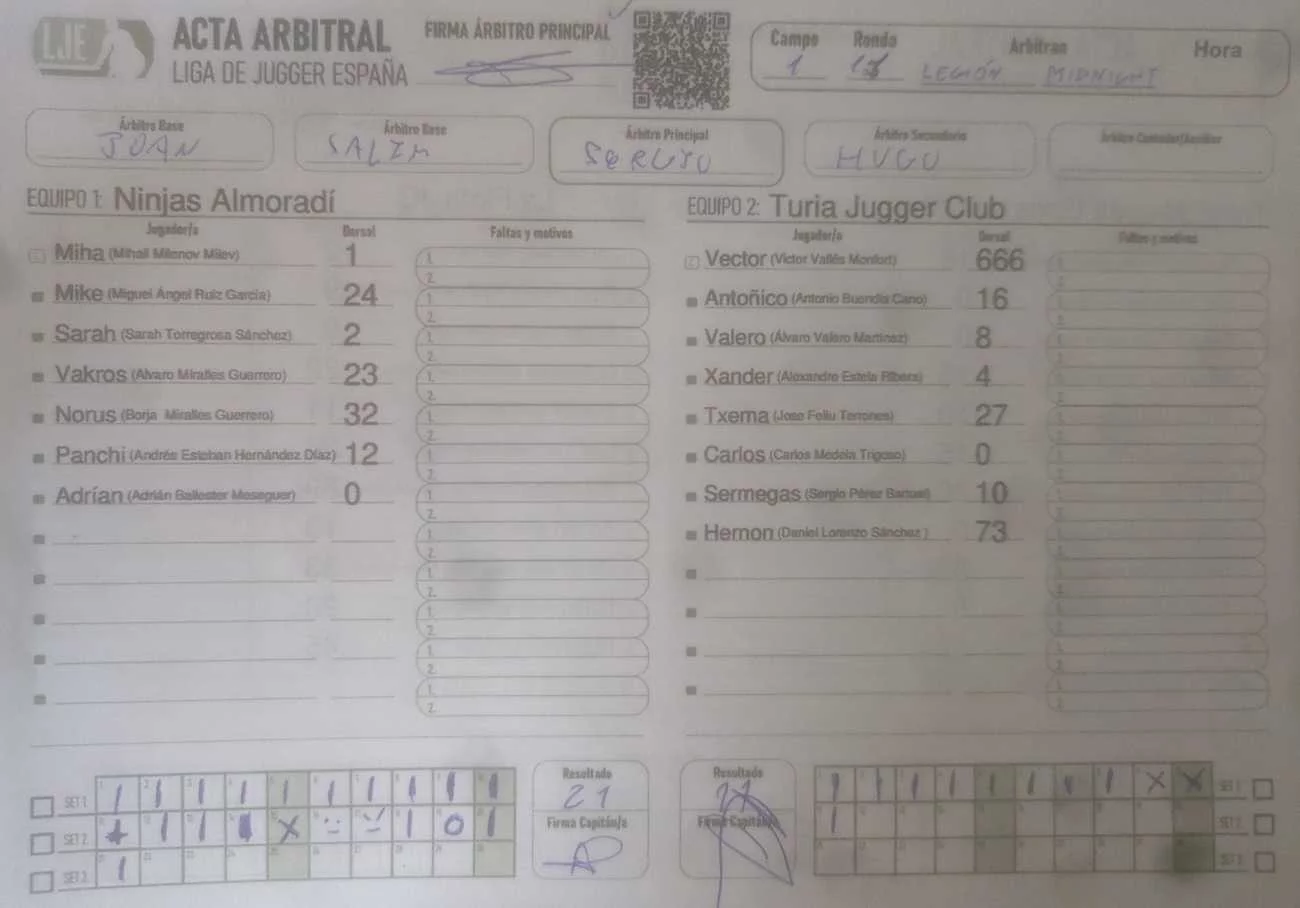 LJE
ACTA ARBITRAL
LIGA DE JUGGER ESPAÑA
FIRMA ÁRBITRO PRINCIPAL
Campo Ronda Arbitran Hora
1 LEGIÓN MIDNIGHT
Árbitro Base
JUAN
Árbitro Base
SALIM
Árbitro Principal
SERGIO
Árbitro Secundario
HUGO
Árbitro Contador/Auxiliar
EQUIPO 1: Ninjas Almoradí
Jugador/a Dorsal Faltas y motivos
Miha (Mihail Milenov Milev) 1
Mike (Miguel Ángel Ruiz García) 24
Sarah (Sarah Torregrosa Sánchez) 2
Vakros (Alvaro Miralles Guerrero) 23
Norus (Borja Miralles Guerrero) 32
Panchi (Andrés Esteban Hernández Díaz) 12
Adrían (Adrián Ballester Meseguer) 0
EQUIPO 2: Turia Jugger Club
Jugador/a Dorsal Faltas y motivos
Vector (Victor Vallés Monfort) 666
Antoñico (Antonio Buendía Cano) 16
Valero (Álvaro Valero Martinez) 8
Xander (Alexandre Estela Ribera) 4
Txema (Jose Feliu Terrones) 27
Carlos (Carlos Medela Trigoso) 0
Sermegas (Sergio Pérez Bartual) 10
Hemon (Daniel Lorenzo Sánchez ) 73
SET 1
SET 2
SET 3
Resultado
21
Firma Capitán/a
Resultado
Firma Capitán/a
SET 1
SET 2
SET 3